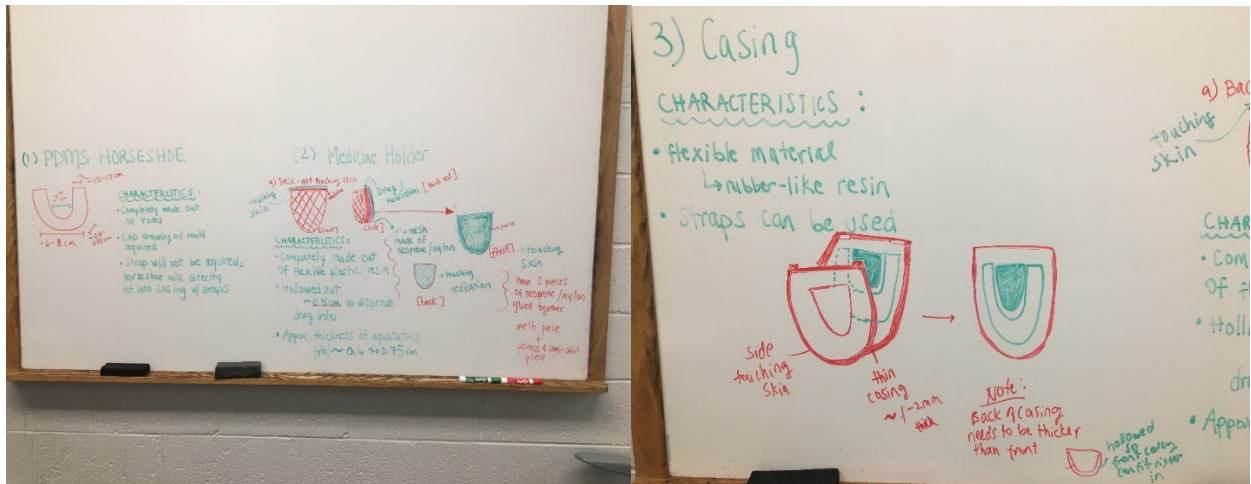 (1) PDMS HORSESHOE
~6-8 cm
CHARACTERISTICS:
• Completely made out
of PDMS
• CAD drawing of mould
required
• Strap will not be required;
horseshoe will directly
fit into casing w/ straps
(2) Medicine Holder
a) BACK - not touching skin
touching
skin
Drug/
medication
[side]
mesh
made of
neoprene/nylon
[front]
touching
skin
CHARACTERISTICS:
• Completely made out
of flexible plastic resin
• Hollowed out
~0.5cm to dispense
drug into
• Approx. thickness of apparatus
total ~ 0.6 to 0.75cm
touching
medication
[back]
Have 2 pieces
of neoprene/nylon
glued together
mesh piece
+
porous & semi-solid
piece
3) Casing
CHARACTERISTICS:
• flexible material
↳ rubber-like resin
• straps can be used
side
touching
skin
thin
casing
~1-2mm
thick
Note:
Back of casing
needs to be thicker
than front
hollowed
so
front casing
can fit
in
a) Bac
touching
skin
CHAR
• Com
of f
• Hollo
dr
• Appro